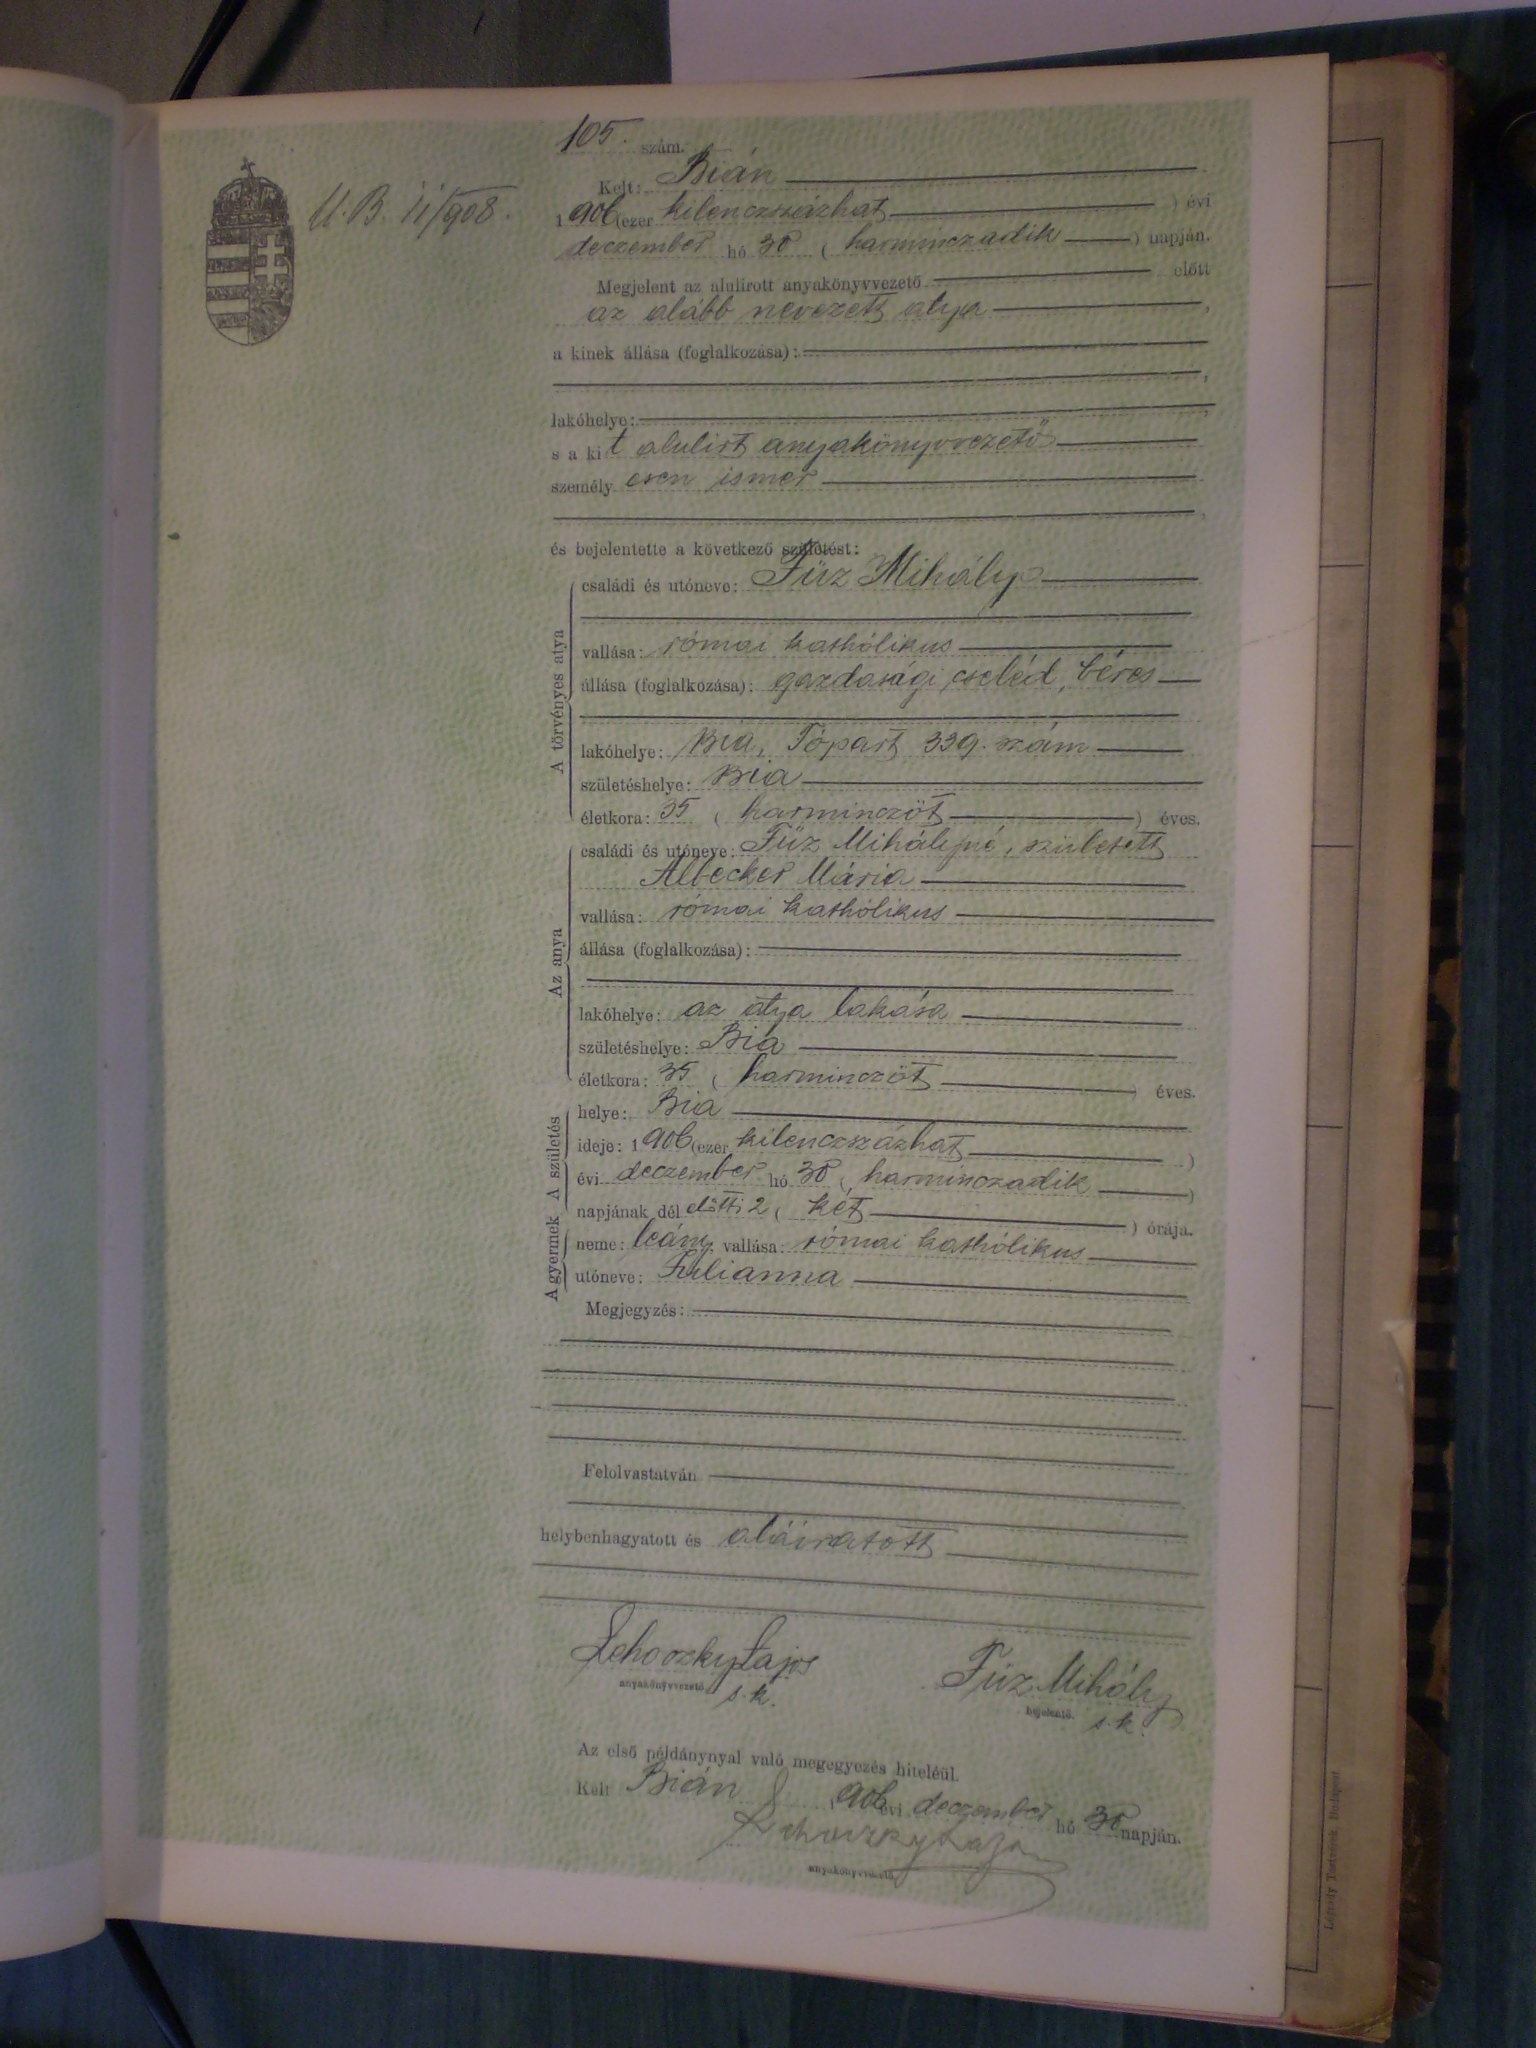 105. szám.
U. B. 11/908.
Kelt: Bián
1906 (ezer kilenczszázhat) évi
deczember hó 30 (harminczadik) napján.
Megjelent az alulirott anyakönyvvezető előtt
az alább nevezett atya,
a kinek állása (foglalkozása):
lakóhelye:
s a kit alulirt anyakönyvvezető
személyesen ismer
és bejelentette a következő születést:
A törvényes atya
családi és utóneve: Füz Mihály
vallása: római katholikus
állása (foglalkozása): gazdasági cseléd, béres
lakóhelye: Bia, Tópart 339. szám
születéshelye: Bia
életkora: 35 (harminczöt) éves.
Az anya
családi és utóneve: Füz Mihályné, született
Albecker Mária
vallása: római katholikus
állása (foglalkozása):
lakóhelye: az atya lakása
születéshelye: Bia
életkora: 35 (harminczöt) éves.
A születés
helye: Bia
ideje: 1906 (ezer kilenczszázhat)
évi deczember hó 30 (harminczadik)
napjának dél előtti 2 (két) órája.
A gyermek
neme: leány, vallása: római katholikus
utóneve: Julianna
Megjegyzés:
Felolvastatván
helybenhagyatott és aláiratott
Lehoczky Lajos
anyakönyvvezető.
s. k.
Füz Mihály
bejelentő.
s. k.
Az első példánynyal való megegyezés hiteléül.
Kelt Bián, 1906 évi deczember hó 30 napján.
Lehoczky Lajos
anyakönyvvezető.